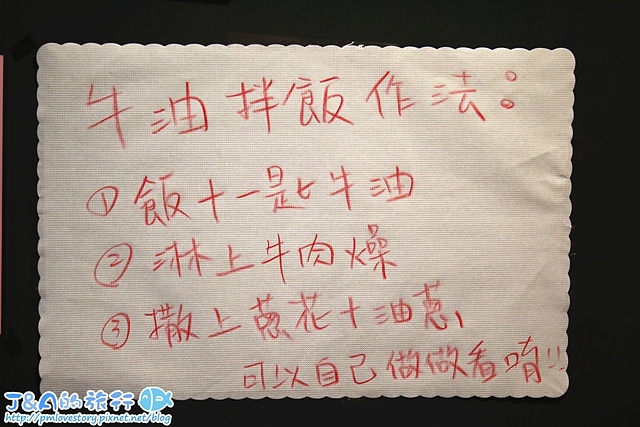 牛油拌飯作法:
①飯+一匙牛油
②淋上牛肉燥
③撒上蔥花+油蔥,
可以自己做做看唷!!
J&A的旅行
http://pmlovestory.pixnet.net/blog